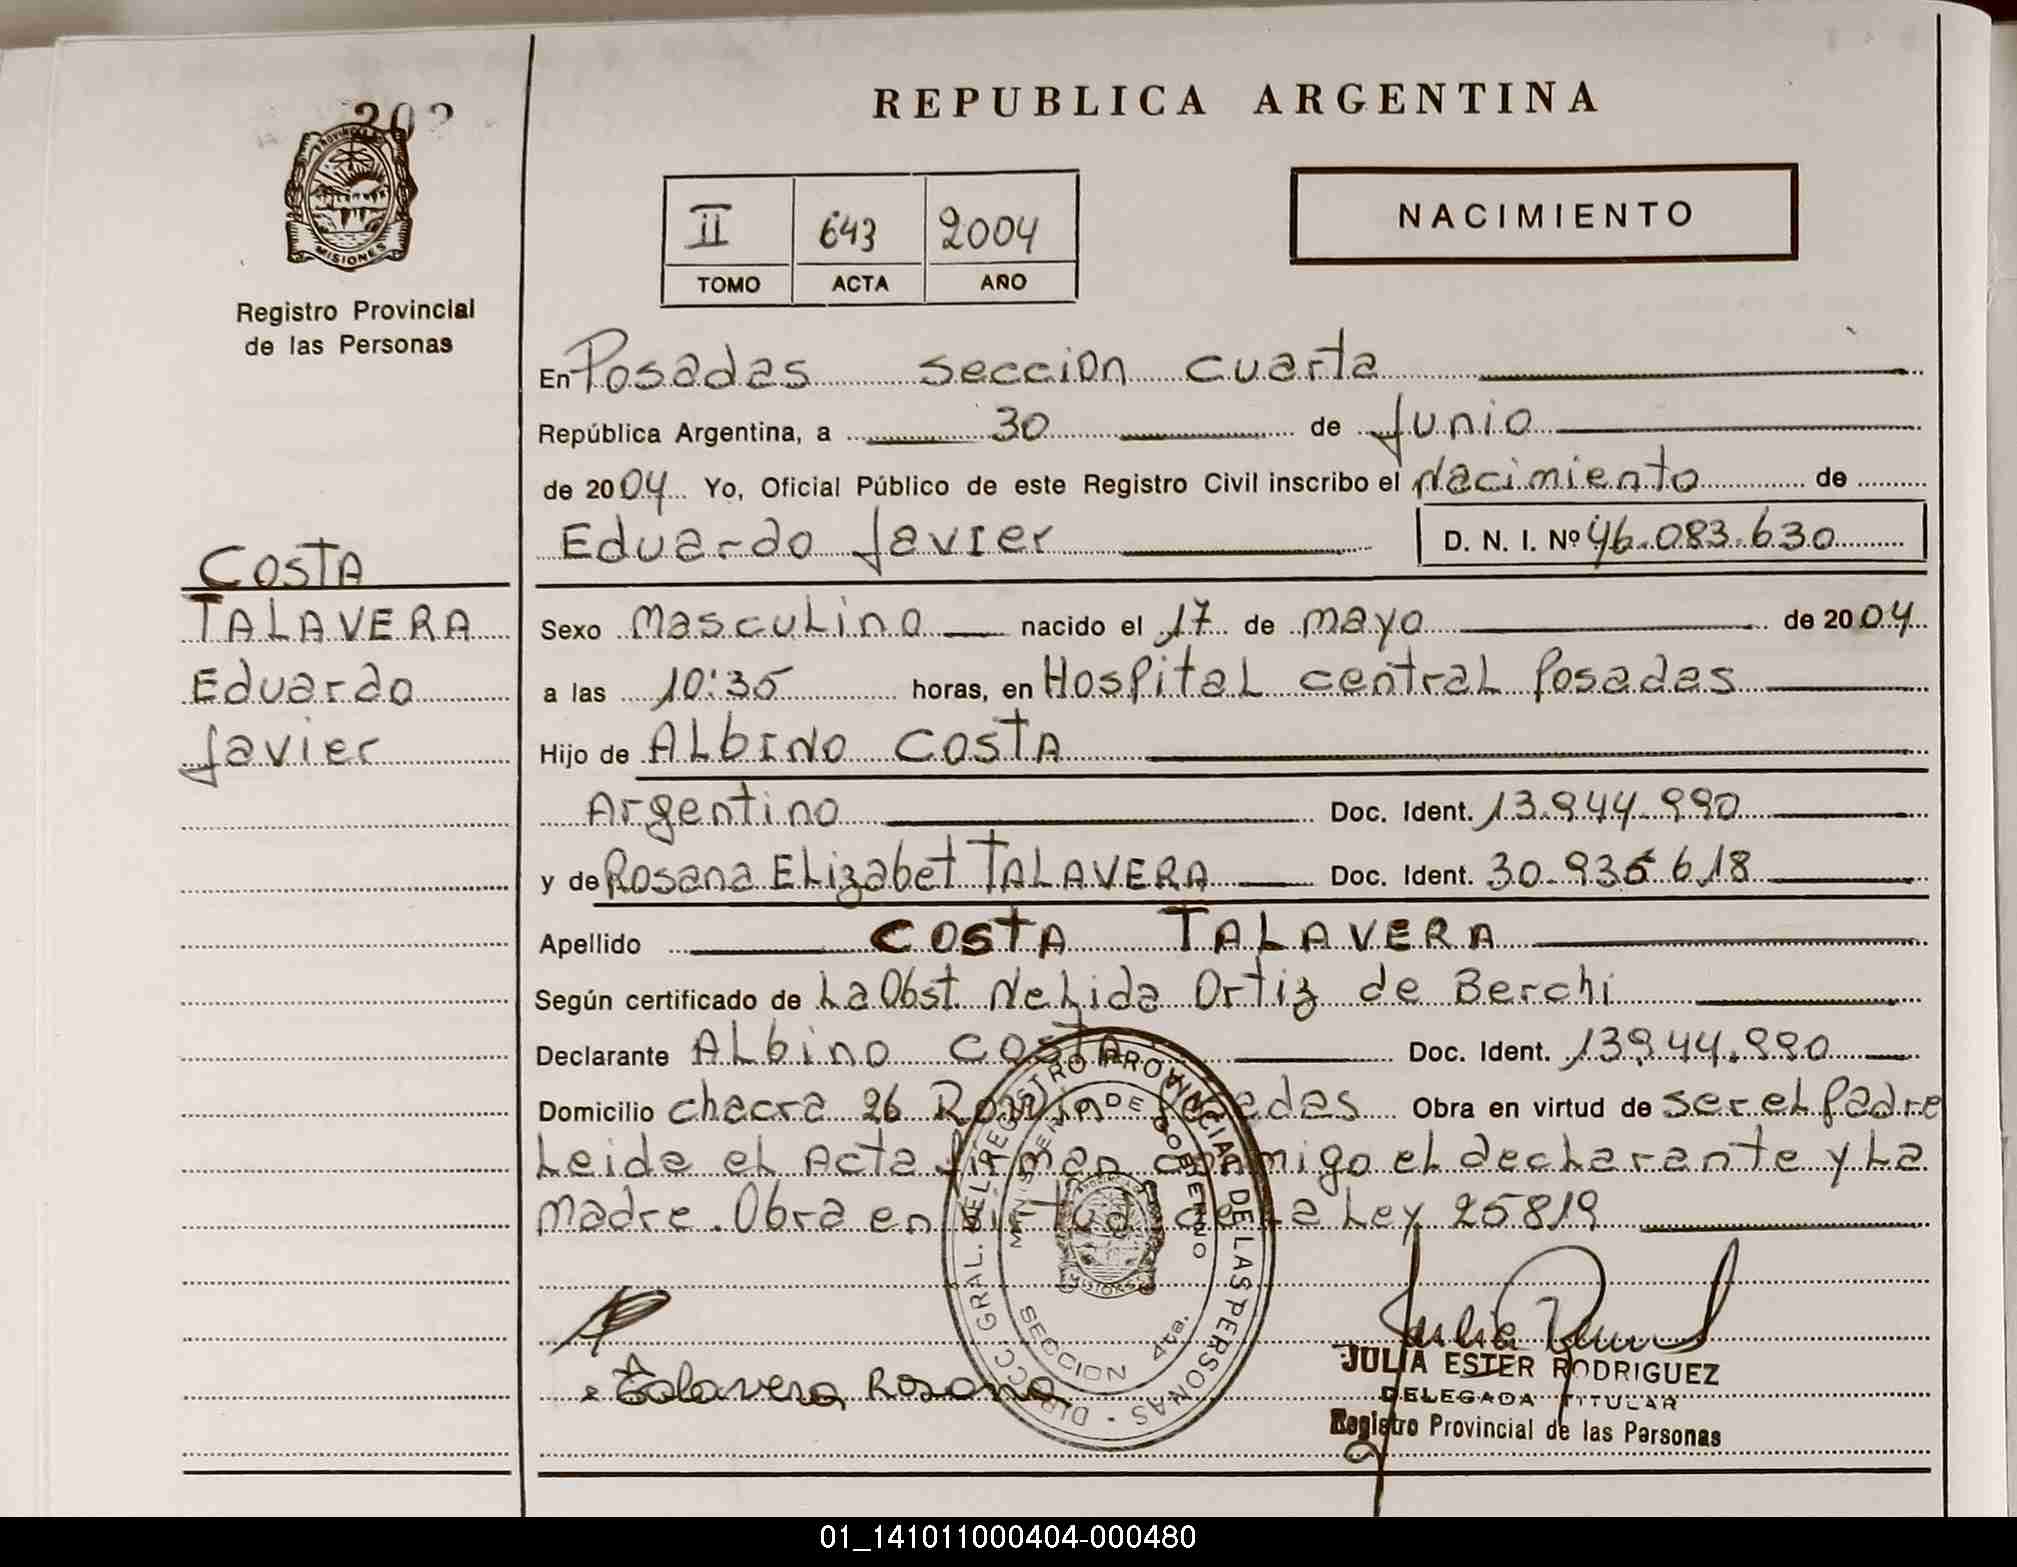 202
PROVINCIA DE
MISIONES
Registro Provincial
de las Personas
COSTA
TALAVERA
Eduardo
Javier
REPUBLICA ARGENTINA
II 643 2004
TOMO ACTA AÑO
NACIMIENTO
En Posadas seccion cuarta
República Argentina, a 30 de Junio
de 2004 Yo, Oficial Público de este Registro Civil inscribo el Nacimiento de
Eduardo Javier D. N. I. Nº 46.083.630
Sexo Masculino nacido el 17 de mayo de 2004
a las 10:35 horas, en Hospital central Posadas
Hijo de Albino COSTA
Argentino Doc. Ident. 13.944.990
y de Rosana Elizabet TALAVERA Doc. Ident. 30.936.618
Apellido COSTA TALAVERA
Según certificado de La Obst. Nelida Ortiz de Berchi
Declarante Albino COSTA Doc. Ident. 13944.990
Domicilio chacra 26 Posadas Obra en virtud de ser el Padre
Leida el Acta firman conmigo el declarante y La
madre. Obra en virtud de La Ley 25819
DIRECC. GRAL. DEL REGISTRO PROVINCIAL DE LAS PERSONAS
MINISTERIO DE GOBIERNO
MISIONES
SECCION 4ta.
Talavera Rosana
JULIA ESTER RODRIGUEZ
DELEGADA TITULAR
Registro Provincial de las Personas
01_141011000404-000480